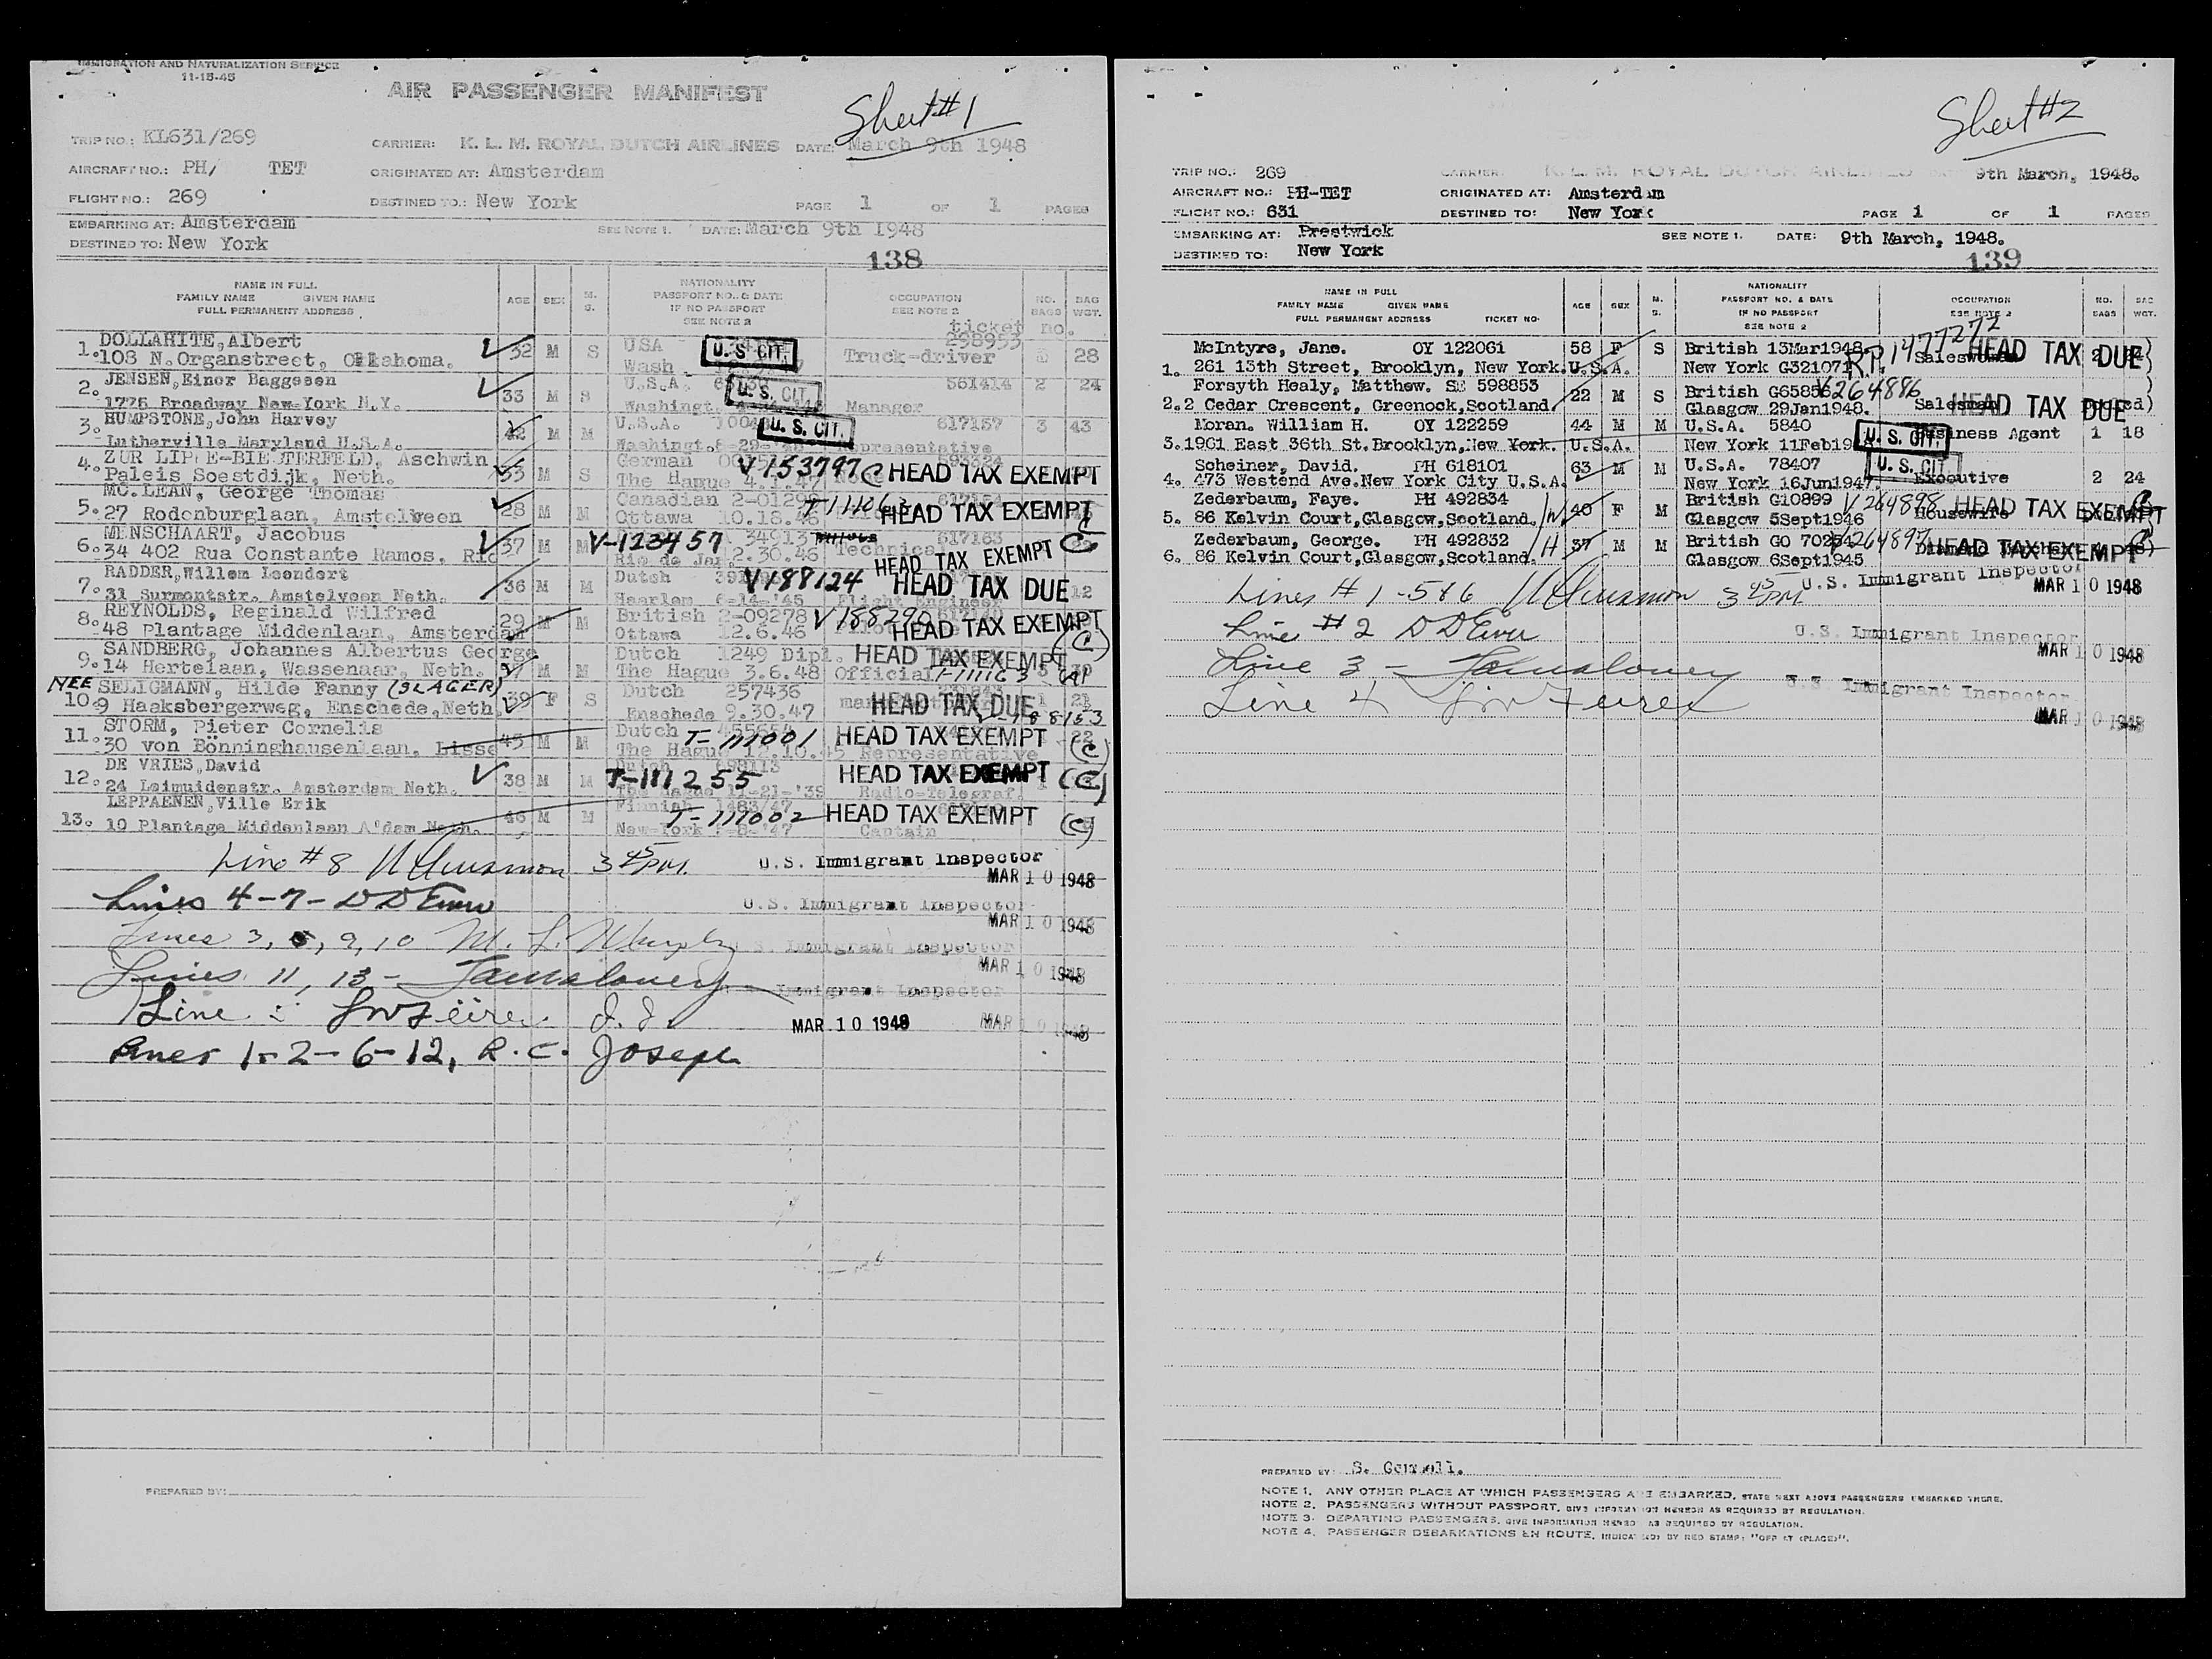 IMMIGRATION AND NATURALIZATION SERVICE
11-15-45
AIR PASSENGER MANIFEST
Sheet #1
TRIP NO.: KL631/269 CARRIER: K. L. M. ROYAL DUTCH AIRLINES DATE: March 9th 1948
AIRCRAFT NO.: PH/ TET ORIGINATED AT: Amsterdam
FLIGHT NO.: 269 DESTINED TO.: New York PAGE 1 OF 1 PAGES
EMBARKING AT: Amsterdam SEE NOTE 1. DATE: March 9th 1948
DESTINED TO: New York
138
NAME IN FULL
FAMILY NAME GIVEN NAME
FULL PERMANENT ADDRESS
AGE SEX M. S.
NATIONALITY
PASSPORT NO. & DATE
IF NO PASSPORT
SEE NOTE 2
OCCUPATION
SEE NOTE 2
NO. BAGS BAG WGT.
ticket no.
DOLLAHITE, Albert USA U. S. CIT. 298953
1. 108 N.Organstreet, Oklahoma. 32 M S Wash Truck-driver 28
JENSEN, Einor Baggesen U.S.A. U. S. CIT. 561414 2 24
2. 1775 Broadway New-York N.Y. 33 M S Washingt. Manager
HUMPSTONE, John Harvey U.S.A. U. S. CIT. 617157 3 43
3. Lutherville Maryland U.S.A. 42 M M Washingt. 8-29- Representative
ZUR LIPPE-BIESTERFELD, Aschwin German V153797 C HEAD TAX EXEMPT
4. Paleis Soestdijk, Neth. 33 M S The Hague
MC.LEAN, George Thomas Canadian 617154
5. 27 Rodenburglaan, Amstelveen 28 M M Ottawa 10.18.46 HEAD TAX EXEMPT
MENSCHAART, Jacobus V-123457 34913 617163
6. 34 402 Rua Constante Ramos. Rio 37 M M Rio de Jan. 2.30.46 Technical HEAD TAX EXEMPT
RADDER, Willem Leendert Dutch V188124 HEAD TAX DUE
7. 31 Surmontstr. Amstelveen Neth. 36 M M Haarlem 6-14-'45 Flight Engineer 12
REYNOLDS, Reginald Wilfred British 2-09278 V188290 HEAD TAX EXEMPT
8. 48 Plantage Middenlaan, Amsterdam 29 M M Ottawa 12.6.46 (C)
SANDBERG, Johannes Albertus George Dutch 1249 Dipl. HEAD TAX EXEMPT
9. 14 Hertelaan, Wassenaar, Neth. M M The Hague 3.6.48 Official T-111163
NEE SELIGMANN, Hilde Fanny (SLAGER) Dutch 257436 HEAD TAX DUE 1 21
10. 9 Haaksbergerweg, Enschede, Neth. 39 F S Enschede 9.30.47 V-188153
STORM, Pieter Cornelis Dutch T-111001 HEAD TAX EXEMPT 22
11. 30 von Bönninghausenlaan, Lisse 45 M M The Hague Representative (C)
DE VRIES, David Dutch 698113 HEAD TAX EXEMPT (C)
12. 24 Leimuidenstr. Amsterdam Neth. 38 M M T-111255 The Hague 11-21-'39 Radio-Telegraf. 1
LEPPAENEN, Ville Erik Finnish 1483/47 HEAD TAX EXEMPT
13. 10 Plantage Middenlaan A'dam Neth. 46 M M T-111002 New-York Captain (C)
Line #8 3 45 PM. U.S. Immigrant Inspector
MAR 10 1948
Lines 4-7- D D Ewer U.S. Immigrant Inspector
MAR 10 1948
Lines 3, 9, 10 M. L. Murphy U.S. Immigrant Inspector
MAR 10 1948
Lines 11, 13 - U.S. Immigrant Inspector
Line MAR 10 1948 MAR 10 1948
Lines 1-2-6-12, R. C. Joseph
PREPARED BY:
Sheet #2
TRIP NO.: 269 CARRIER: K. L. M. ROYAL DUTCH AIRLINES 9th March, 1948.
AIRCRAFT NO.: PH-TET ORIGINATED AT: Amsterdam
FLIGHT NO.: 631 DESTINED TO: New York PAGE 1 OF 1 PAGES
EMBARKING AT: Prestwick SEE NOTE 1. DATE: 9th March, 1948.
DESTINED TO: New York
139
NAME IN FULL
FAMILY NAME GIVEN NAME
FULL PERMANENT ADDRESS TICKET NO.
AGE SEX M. S.
NATIONALITY
PASSPORT NO. & DATE
IF NO PASSPORT
SEE NOTE 2
OCCUPATION
SEE NOTE 2
NO. BAGS BAG WGT.
McIntyre, Jane. OY 122061 58 F S British 13Mar1948 RP1477272 Saleswoman HEAD TAX DUE
1. 261 13th Street, Brooklyn, New York.U.S.A. New York G321071
Forsyth Healy, Matthew. SE 598853 22 M S British G65856 V264886
2. 2 Cedar Crescent, Greenock,Scotland. Glasgow 29Jan1948. Salesman HEAD TAX DUE
Moran. William H. OY 122259 44 M M U.S.A. 5840 U. S. CIT. Business Agent 1 18
3. 1901 East 36th St.Brooklyn,New York. U.S.A. New York 11Feb19
Scheiner, David. PH 618101 63 M M U.S.A. 78407 U. S. CIT.
4. 473 Westend Ave.New York City U.S.A. New York 16Jun1947. Executive 2 24
Zederbaum, Faye. PH 492834 W 40 F M British G10899 V264898 Housewife HEAD TAX EXEMPT
5. 86 Kelvin Court,Glasgow,Scotland. Glasgow 5Sept1946
Zederbaum, George. PH 492832 H 37 M M British GO V264897 Diamond HEAD TAX EXEMPT
6. 86 Kelvin Court,Glasgow,Scotland. Glasgow 6Sept1945
Lines # 1-5&6 3 45 PM U.S. Immigrant Inspector
MAR 10 1948
Line #2 D D Ewer U.S. Immigrant Inspector
MAR 10 1948
Line 3 - U.S. Immigrant Inspector
Line 4 MAR 10 1948
PREPARED BY: S.
NOTE 1. ANY OTHER PLACE AT WHICH PASSENGERS ARE EMBARKED, STATE NEXT ABOVE PASSENGERS EMBARKED THERE.
NOTE 2. PASSENGERS WITHOUT PASSPORT, GIVE INFORMATION HEREON AS REQUIRED BY REGULATION.
NOTE 3. DEPARTING PASSENGERS, GIVE INFORMATION HEREON AS REQUIRED BY REGULATION.
NOTE 4. PASSENGER DEBARKATIONS EN ROUTE, INDICATED BY RED STAMP: "OFF AT (PLACE)".